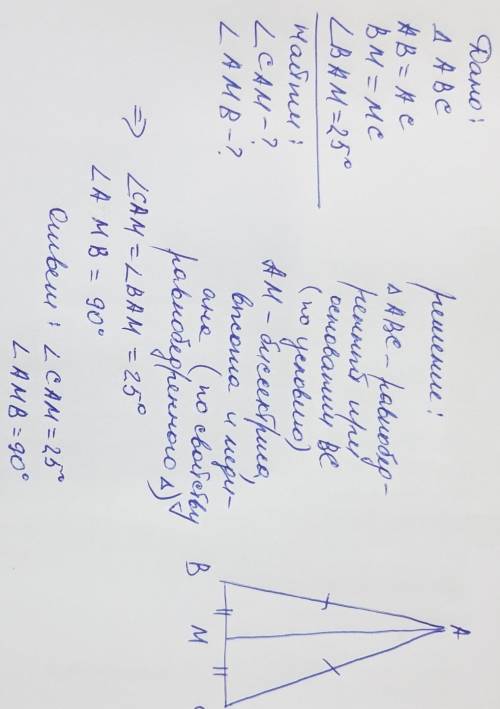 Дано:
Δ ABC
AB = AC
BM = MC
∠BAM = 25°
Найти:
∠CAM - ?
∠AMB - ?
решение:
ΔABC – равнобед-
ренный при
основании BC
(по условию)
AM – биссектриса,
высота и меди-
ана (по свойству
равнобедренного Δ)
=> ∠CAM = ∠BAM = 25°
∠AMB = 90°
Ответ: ∠CAM = 25°
∠AMB = 90°
A
B
M